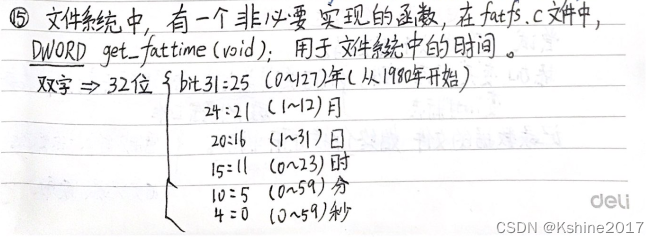 ⑮ 文件系统中，有一个非必要实现的函数，在fatfs.c文件中，
DWORD get_fattime(void); 用于文件系统中的时间。
双字 ⇒ 32位 { bit31:25 (0~127)年(从1980年开始)
24:21 (1~12)月
20:16 (1~31)日
15:11 (0~23)时
10:5 (0~59)分
4:0 (0~59)秒
deli
CSDN @Kshine2017